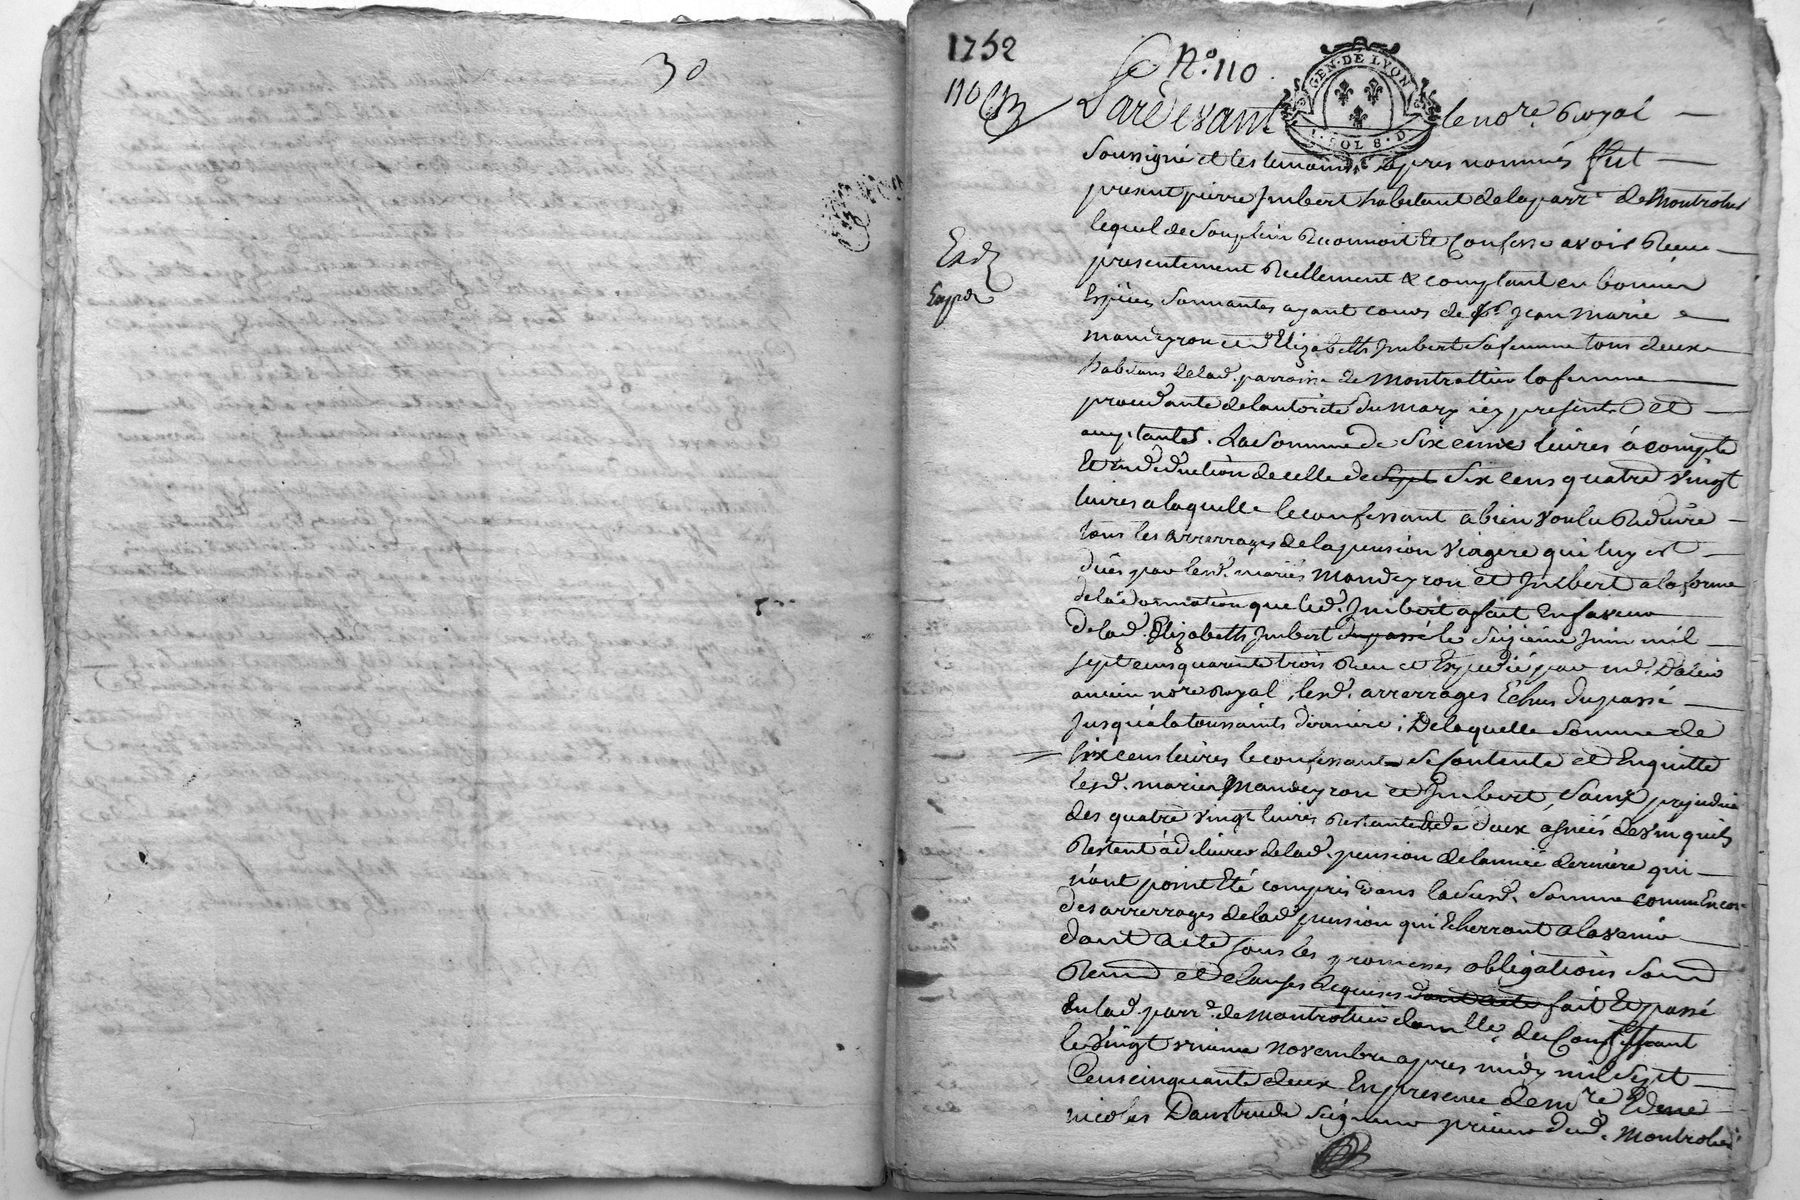 30
1752
N.º 110
110
GEN. DE LYON
SOL 8. D
Pardevant le nore. Royal
Soussigné et les temoins apres nommés fut
present pierre Imbert habitant de la parr.e de Montrotier
lequel de Son plein Reconnoit Et Confesse avoir Receu
presentement Reellement & comptant en bonnes
Espéces Sonnantes ayant cours de Sr. Jean Marie
mandeyron et Elizabeth Imbert Sa femme tous deux
habitans de lad. parroisse de Montrottier la femme
procedante de l'autorité du mary icy presents et
acceptantes. La Somme de Six cens livres à compte
Et en déduction de celle de Sept Six cens quatre vingt
livres a laquelle le confessant a bien voulu Reduire
tous les arrerrages de la pension viagere qui luy est
dües par lesd. mariés Mandeyron et Imbert a la forme
de la donnation que led. Imbert a fait En faveur
de lad. Elizabeth Imbert du passé le Seizieme Juin mil
sept cens quarente trois Receu et Expedié par me.
ancien nore Royal, lesd. arrerrages Echus du passé
Jusqu'à la toussaints derniere; De laquelle Somme de
Six cens livres le confessant se Contente et En quitte
lesd. mariés Mandeyron et Imbert, Sans prejudice
des quatre vingt livres Restantes Et de deux asnées de vin qu'ils
Restent à délivrer de lad. pension de l'année derniere qui
n'ont point Eté compris dans la Susd. Somme comm'Encor
des arrerrages de lad. pension qui Echerront a l'avenir
dont acte Sous les promesses obligations Soum.
Renon. et clauses Requises dont acte fait Et passé
En lad. parr.e de Montrotier domlle. du Confessant
le vingt unieme novembre apres midy mil Sept
Cens cinquante deux En presence de mre.
nicolas Seigneur prieur dud. Montrotier